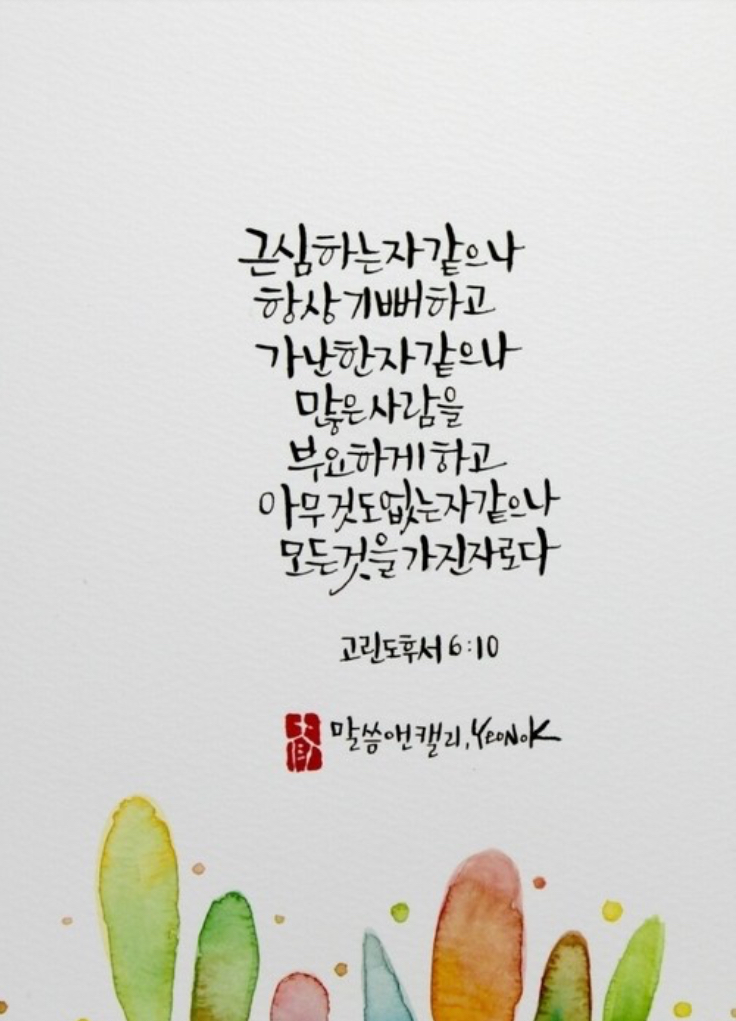 근심하는자같으나
항상기뻐하고
가난한자같으나
많은사람을
부요하게하고
아무것도없는자같으나
모든것을가진자로다
고린도후서 6:10
말씀앤캘리, YEONOK